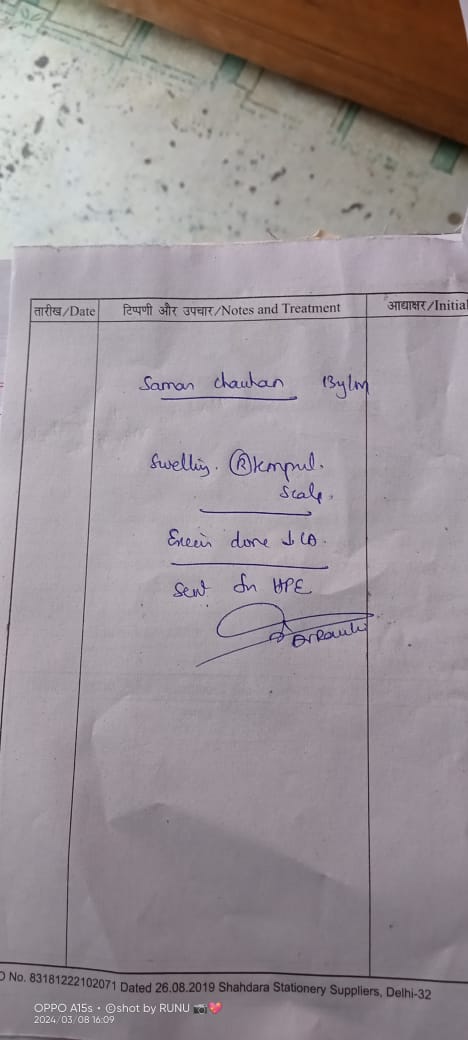 तारीख/Date टिप्पणी और उपचार/Notes and Treatment आद्याक्षर/Initial
Saman Chauhan 13y/m
Swelling. (R) temporal.
Scalp.
done ↓ LA.
Sent for HPE
No. 83181222102071 Dated 26.08.2019 Shahdara Stationery Suppliers, Delhi-32
OPPO A15s · ©shot by RUNU 📷💖
2024/03/08 16:09